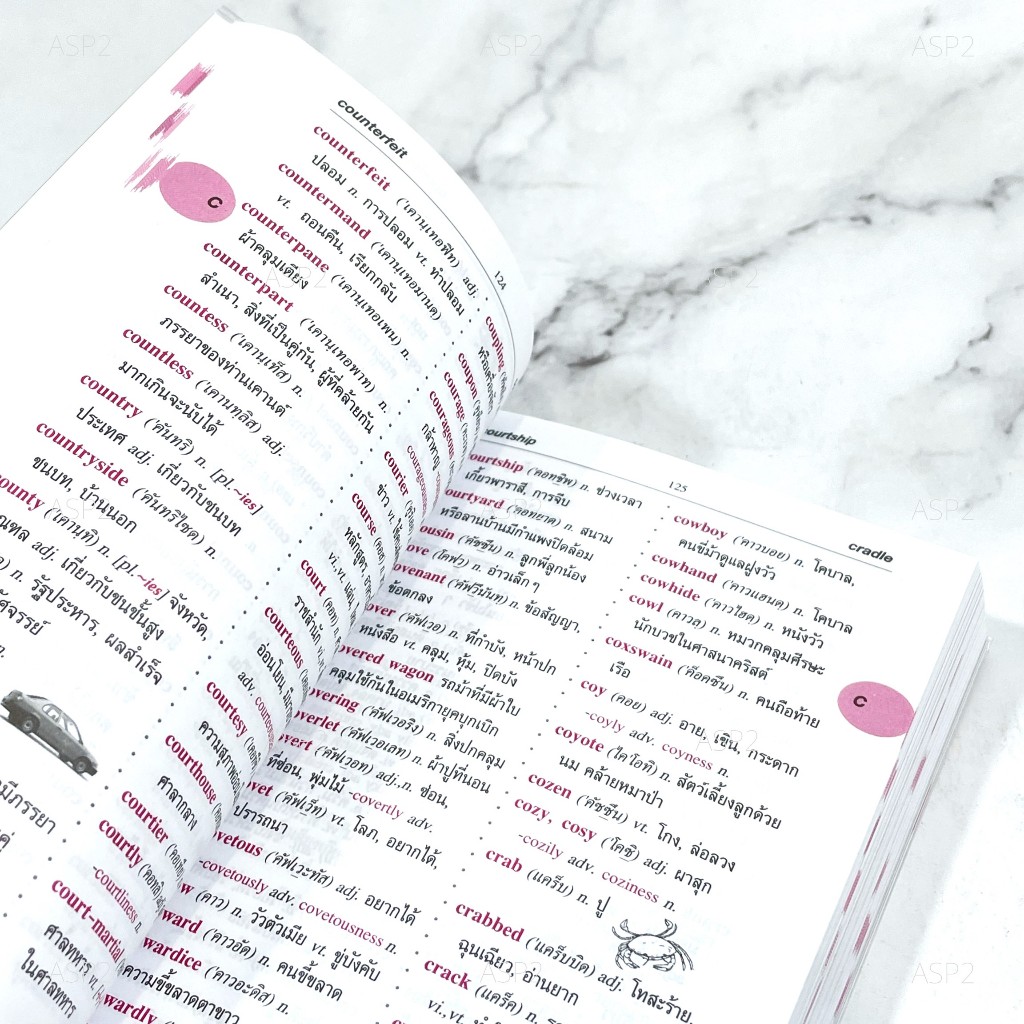 ASP2
ASP2
ASP2
counterfeit
124
C
counterfeit ('เคานฺเทอฟิท) adj.
ปลอม n. การปลอม vt. ทำปลอม
countermand ('เคานฺเทอมานด)
vt. ถอนคืน, เรียกกลับ
counterpane ('เคานฺเทอเพน) n.
ผ้าคลุมเตียง
counterpart ('เคานฺเทอพาท) n.
สำเนา, สิ่งที่เป็นคู่กัน, ผู้ที่คล้ายกัน
countess ('เคานฺเท็ส) n.
ภรรยาของท่านเคานต์
countless ('เคานทฺลิส) adj.
มากเกินจะนับได้
country (คันทริ) n. [pl.~ies]
ประเทศ adj. เกี่ยวกับชนบท
countryside (คันทริไซด) n.
ชนบท, บ้านนอก
ounty (เคานฺทิ) n. [pl.~ies] จังหวัด,
adj. เกี่ยวกับชนชั้นสูง
n. รัฐประหาร, ผลสำเร็จ
n.
มีภรรยา
coupling
coupon
courage
courageou
กล้าหาญ
courier
ข่าว
course
หลักสูตร
court
ราชสำนัก
courteous
อ่อนโยน
adv. courteously
courtesy
ความสุภาพ
courthouse
ศาลากลาง
courtier
courtly
-courtliness n.
court-martial
ศาลทหาร vt.
ในศาลทหาร
courtship
125
cradle
ourtship (คอทชิพ) n. ช่วงเวลา
เกี้ยวพาราสี, การจีบ
ourtyard (คอทยาด) n. สนาม
หรือลานบ้านมีกำแพงปิดล้อม
ousin (คัซซึน) n. ลูกพี่ลูกน้อง
ove (โคฟ) n. อ่าวเล็ก ๆ
ovenant (คัฟวีนันท) n. ข้อสัญญา,
ข้อตกลง
over (คัฟเวอ) n. ที่กำบัง, หน้าปก
หนังสือ vt. คลุม, หุ้ม, ปิดบัง
overed wagon รถม้าที่มีผ้าใบ
คลุมใช้กันในอเมริกายุคบุกเบิก
overing (คัฟเวอริง) n. สิ่งปกคลุม
overlet (คัฟเวอเลท) n. ผ้าปูที่นอน
overt (คัฟเวอท) adj.,n. ซ่อน,
ที่ซ่อน, พุ่มไม้ -covertly adv.
ovet (คัฟเว็ท) vt. โลภ, อยากได้,
ปรารถนา
vetous (คัฟเวะทัส) adj. อยากได้
-covetously adv. covetousness n.
w (คาว) n. วัวตัวเมีย vt. ขู่บังคับ
ward (คาวอัด) n. คนขี้ขลาด
wardice (คาวอะดิส) n.
ความขี้ขลาดตาขาว
wardly
cowboy (คาวบอย) n. โคบาล,
คนขี่ม้าดูแลฝูงวัว
cowhand (คาวแฮนด) n. โคบาล
cowhide (คาวไฮด) n. หนังวัว
cowl (คาวล) n. หมวกคลุมศีรษะ
นักบวชในศาสนาคริสต์
coxswain (ค็อคซึน) n. คนถือท้าย
เรือ
coy (คอย) adj. อาย, เขิน, กระดาก
-coyly adv. coyness n.
coyote (ไคโอทิ) n. สัตว์เลี้ยงลูกด้วย
นม คล้ายหมาป่า
cozen (คัซซึน) vt. โกง, ล่อลวง
cozy, cosy (โคซิ) adj. ผาสุก
-cozily adv. coziness n.
crab (แคร็บ) n. ปู
crabbed (แคร็บบิด) adj. โทสะร้าย,
ฉุนเฉียว, อ่านยาก
crack (แคร็ค) n.
vi.,vt.
C
ASP2
ASP2
ASP2
ASP2
ASP2
ASP2
ASP2
ASP2